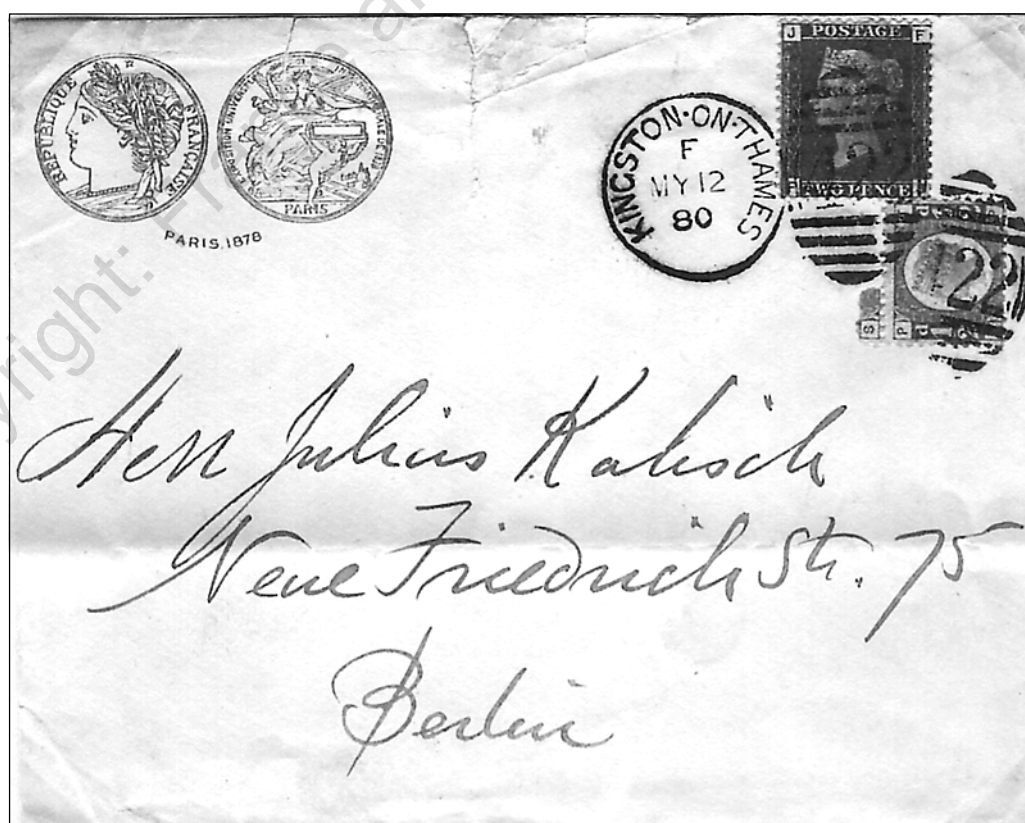 REPUBLIQUE FRANCAISE
PARIS
PARIS, 1878
KINGSTON·ON·THAMES
F
MY 12
80
J POSTAGE F
F TWO PENCE J
22
S P
Herr Julius Kalisch
Neue Friedrich Str. 75
Berlin
right: